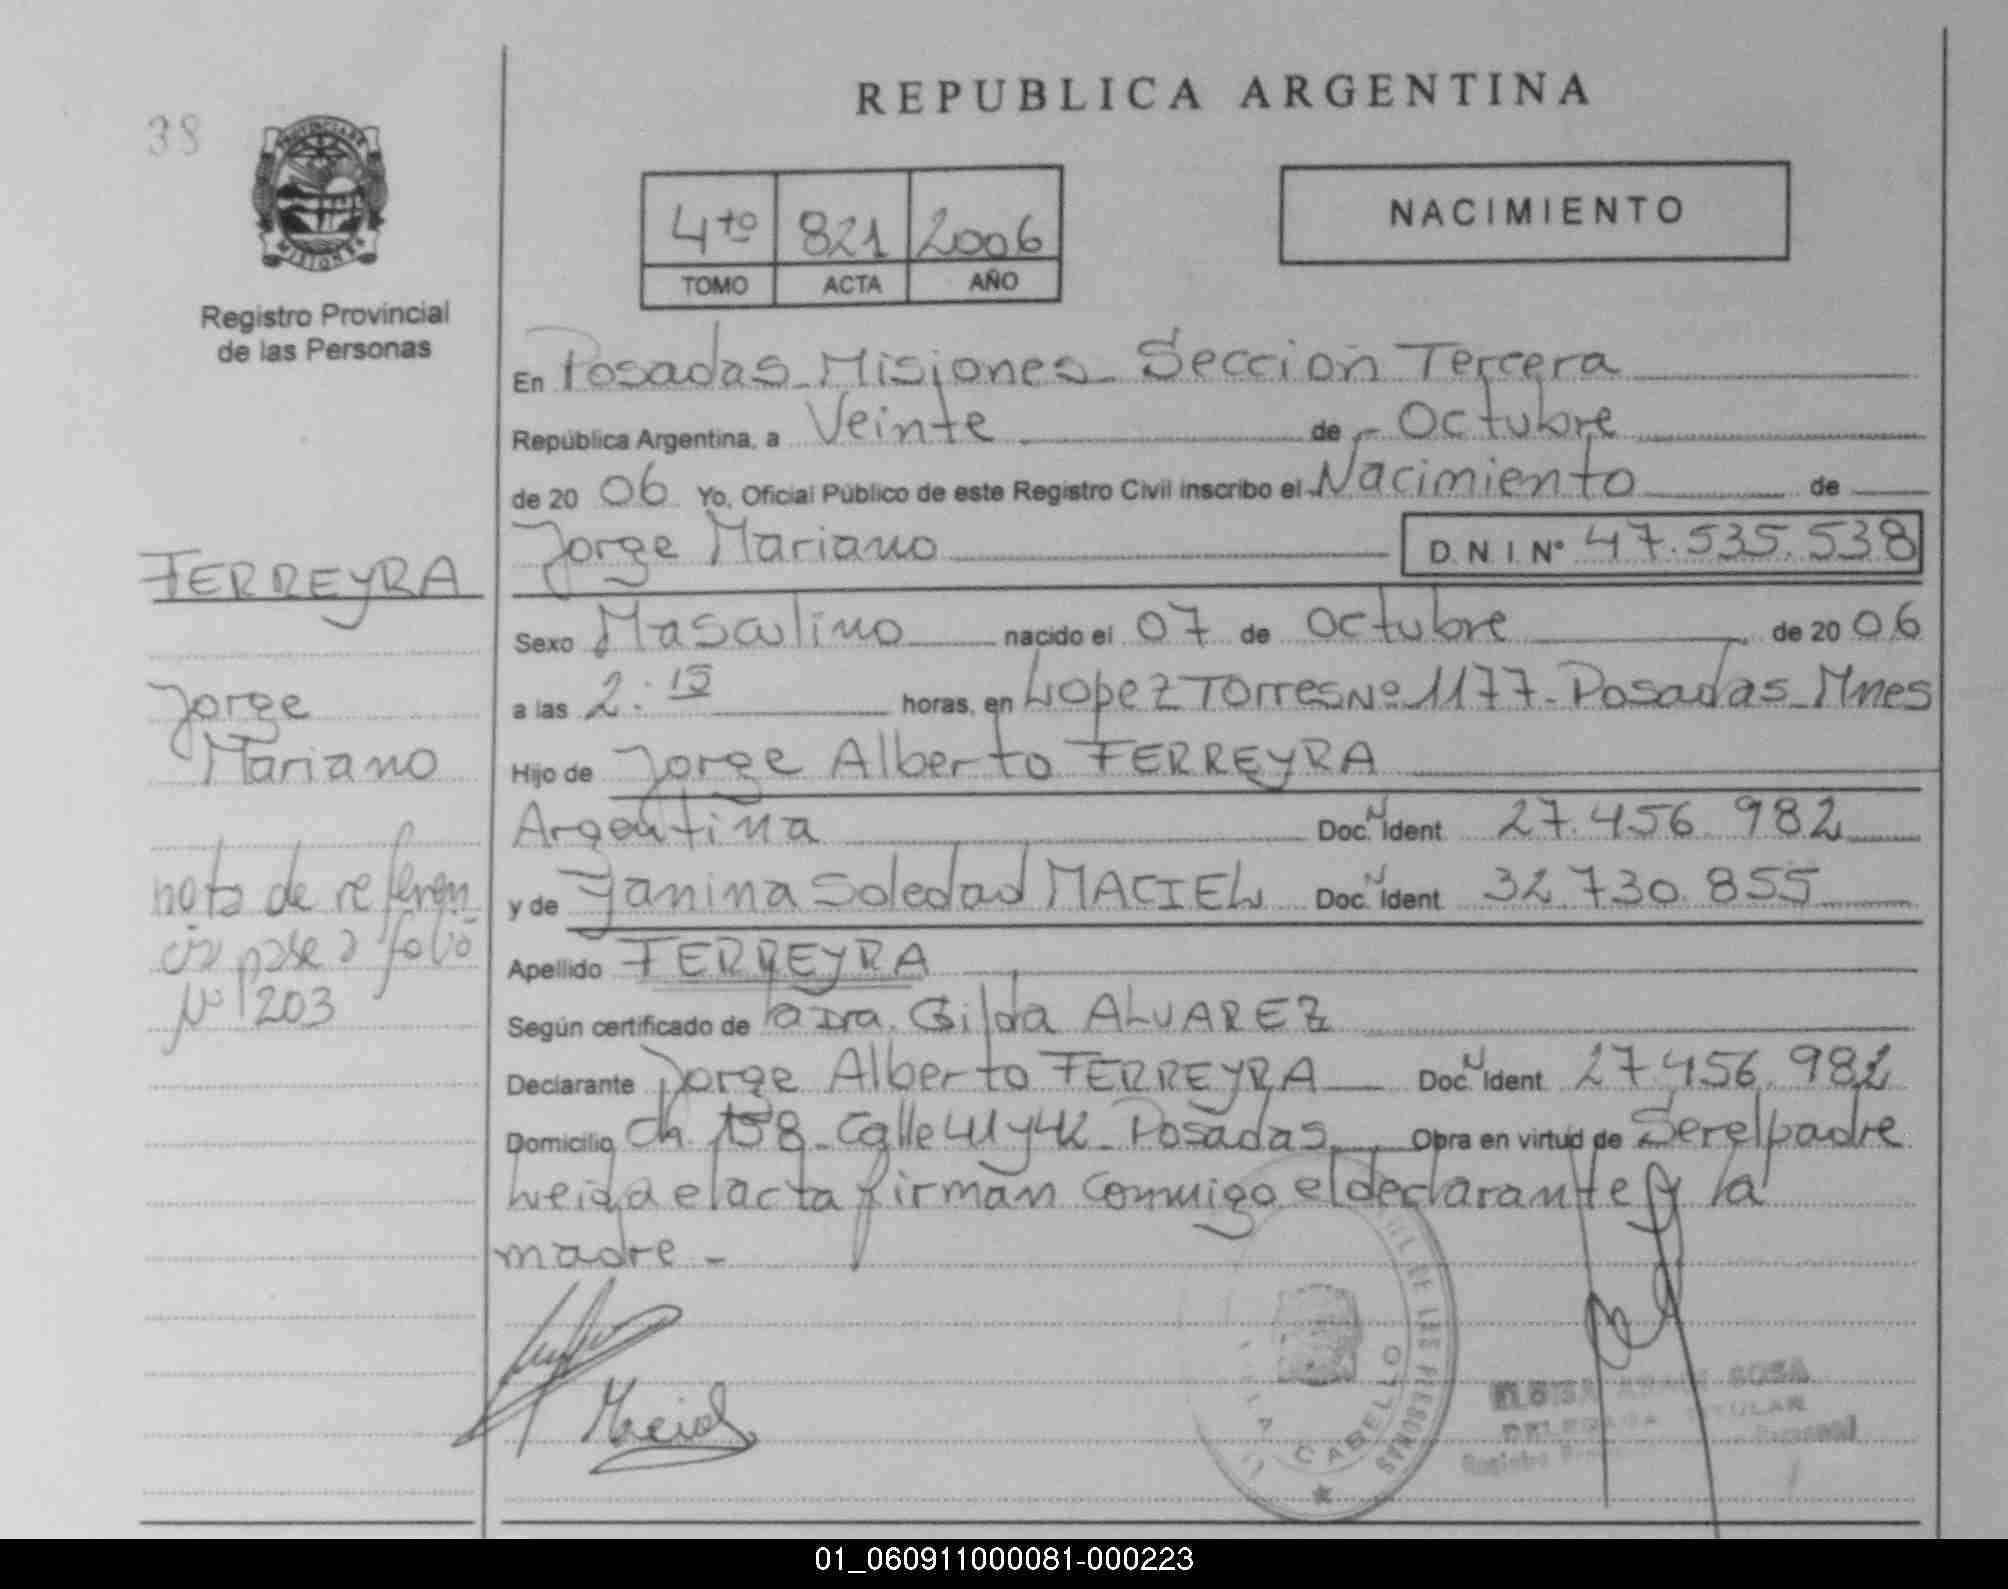 38
PROVINCIA DE
MISIONES
Registro Provincial
de las Personas
REPUBLICA ARGENTINA
4to 821 2006
TOMO ACTA AÑO
NACIMIENTO
En Posadas - Misiones - Sección Tercera
República Argentina, a Veinte de - Octubre
de 20 06 Yo, Oficial Público de este Registro Civil inscribo el Nacimiento de
Jorge Mariano D.N.I. Nº 47.535.538
FERREYRA
Sexo Masculino nacido el 07 de Octubre de 20 06
Jorge
Mariano
a las 2:15 horas, en Lopez Torres Nº 1177 - Posadas - Mnes
Hijo de Jorge Alberto FERREYRA
Argentina Doc. N Ident 27.456.982
y de Yanina Soledad MACIEL Doc. N Ident 32.730.855
nota de referen
cia pase a folio
Nº 203
Apellido FERREYRA
Según certificado de la Dra. Gilda ALVAREZ
Declarante Jorge Alberto FERREYRA Doc. N Ident 27.456.982
Domicilio Ch. 158 - Calle 41 y 42 - Posadas Obra en virtud de Ser el padre
Leida el acta firman conmigo el declarante y la
madre -
Maciel
DE LAS PERSONAS
CABELLO
SOSA
TITULAR
Registro
01_060911000081-000223